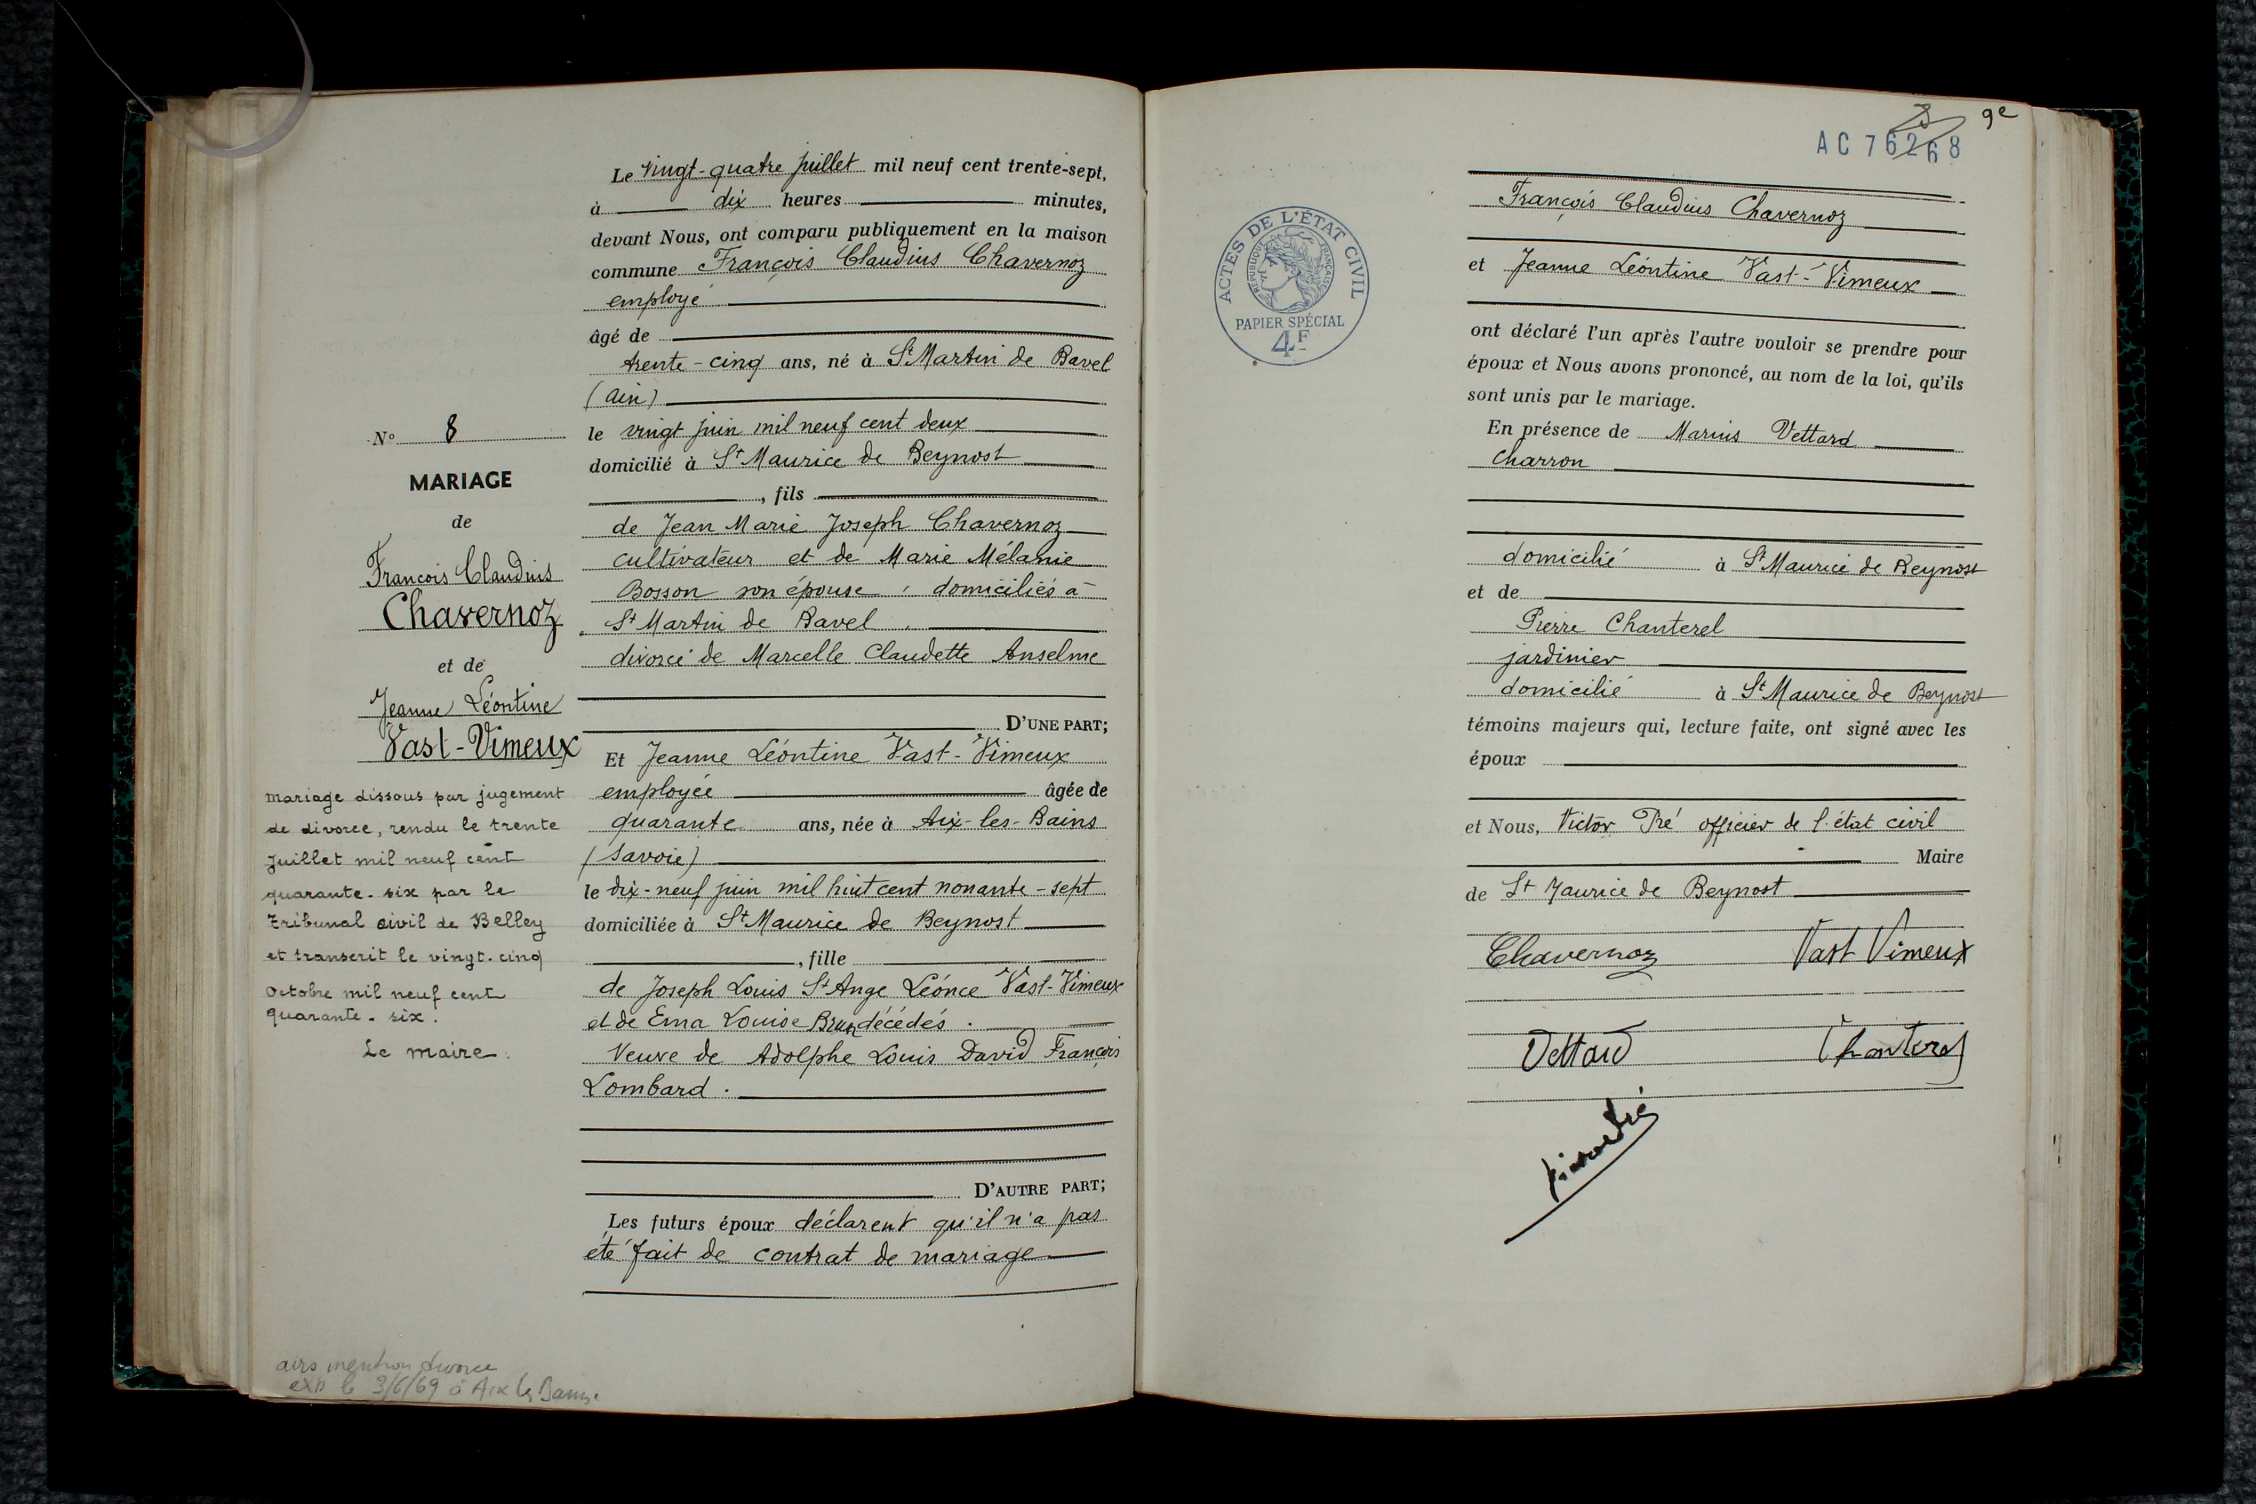 Le vingt-quatre juillet mil neuf cent trente-sept,
à dix heures minutes,
devant Nous, ont comparu publiquement en la maison
commune François Claudius Chavernoz
employé
âgé de
trente-cinq ans, né à St Martin de Bavel
(Ain)
le vingt juin mil neuf cent deux
domicilié à St Maurice de Beynost
, fils
de Jean Marie Joseph Chavernoz
cultivateur et de Marie Mélanie
Bosson son épouse, domiciliés à
St Martin de Bavel.
divorcé de Marcelle Claudette Anselme
D'UNE PART;
Et Jeanne Léontine Vast-Vimeux
employée âgée de
quarante ans, née à Aix-les-Bains
(Savoie)
le dix-neuf juin mil huit cent nonante-sept
domiciliée à St Maurice de Beynost
, fille
de Joseph Louis St Ange Léonce Vast-Vimeux
et de Ema Louise décédés.
Veuve de Adolphe Louis David François
Lombard.
D'AUTRE PART;
Les futurs époux déclarent qu'il n'a pas
été fait de contrat de mariage
N° 8
MARIAGE
de
François Claudius
Chavernoz
et de
Jeanne Léontine
Vast-Vimeux
mariage dissous par jugement
de divorce, rendu le trente
juillet mil neuf cent
quarante-six par le
tribunal civil de Belley
et transcrit le vingt-cinq
octobre mil neuf cent
quarante-six.
Le maire.
avis mention divorce
exp le 3/6/69 à Aix les Bains.
9e
AC 76268
ACTES DE L'ÉTAT CIVIL
RÉPUBLIQUE FRANÇAISE
PAPIER SPÉCIAL
4F
François Claudius Chavernoz
et Jeanne Léontine Vast-Vimeux
ont déclaré l'un après l'autre vouloir se prendre pour
époux et Nous avons prononcé, au nom de la loi, qu'ils
sont unis par le mariage.
En présence de Marius Vettard
charron
domicilié à St Maurice de Beynost
et de
Pierre Chanterel
jardinier
domicilié à St Maurice de Beynost
témoins majeurs qui, lecture faite, ont signé avec les
époux
et Nous, Victor Pré officier de l'état civil
Maire
de St Maurice de Beynost
Chavernoz Vast Vimeux
Vettard Chanterel